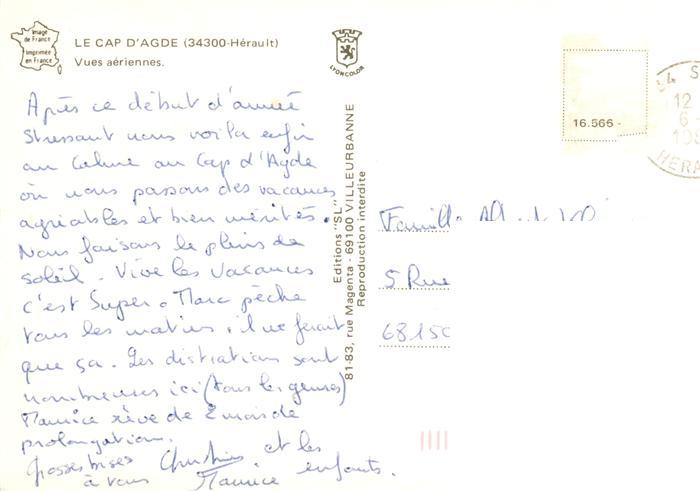 Image
de France
Imprimée
en France
LE CAP D'AGDE (34300-Hérault)
Vues aériennes.
LYONCOLOR
Après ce début d'année
stressant nous voila enfin
au calme au Cap d'Agde
où nous passons des vacances
agréables et bien mérités.
Nous faisons le plein de
soleil. Vive les vacances
c'est super. Marc pêche
tous les matins, il ne ferait
que ça. Les distrations sont
nombreuses ici (tous les genres)
Maurice rêve de 2 mois de
prolongation.
Grosses bises Christine et les
à vous Maurice enfants.
Editions "SL"
81-83, rue Magenta - 69100 VILLEURBANNE
Reproduction interdite
16.566 -
12
6 -
HERA
Famille
5 Rue
68150